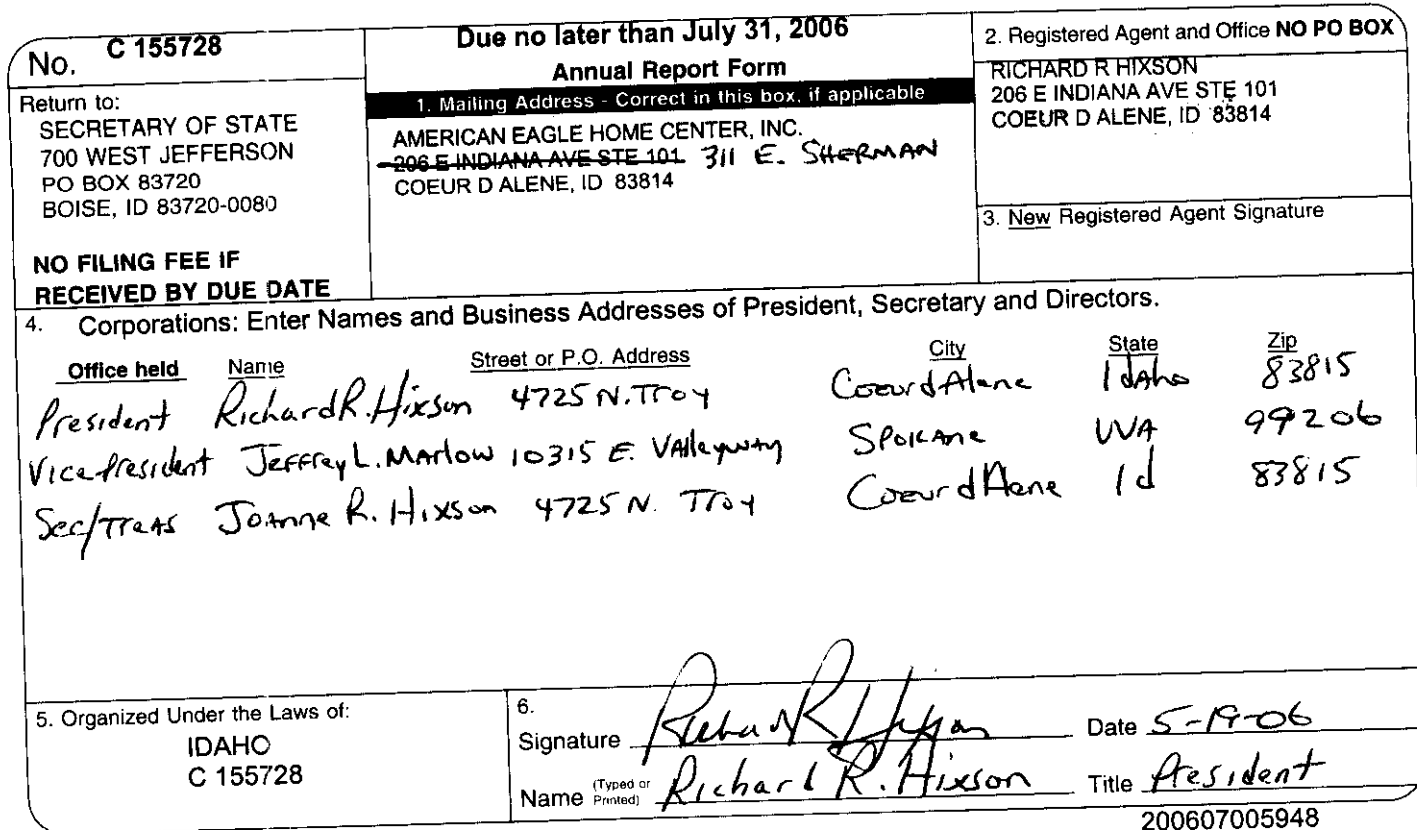 No. C 155728
Return to:
SECRETARY OF STATE
700 WEST JEFFERSON
PO BOX 83720
BOISE, ID 83720-0080
NO FILING FEE IF
RECEIVED BY DUE DATE
Due no later than July 31, 2006
Annual Report Form
1. Mailing Address - Correct in this box, if applicable
AMERICAN EAGLE HOME CENTER, INC.
206 E INDIANA AVE STE 101 311 E. SHERMAN
COEUR D ALENE, ID 83814
2. Registered Agent and Office NO PO BOX
RICHARD R HIXSON
206 E INDIANA AVE STE 101
COEUR D ALENE, ID 83814
3. New Registered Agent Signature
4. Corporations: Enter Names and Business Addresses of President, Secretary and Directors.
Office held Name Street or P.O. Address City State Zip
President Richard R. Hixson 4725 N. Troy Coeur d Alene Idaho 83815
Vice President Jeffrey L. Marlow 10315 E. Valleyway Spokane WA 99206
Sec/Treas Joanne R. Hixson 4725 N. Troy Coeur d Alene Id 83815
5. Organized Under the Laws of:
IDAHO
C 155728
6.
Signature Richard R Hixson Date 5-19-06
Name (Typed or Printed) Richard R. Hixson Title President
200607005948